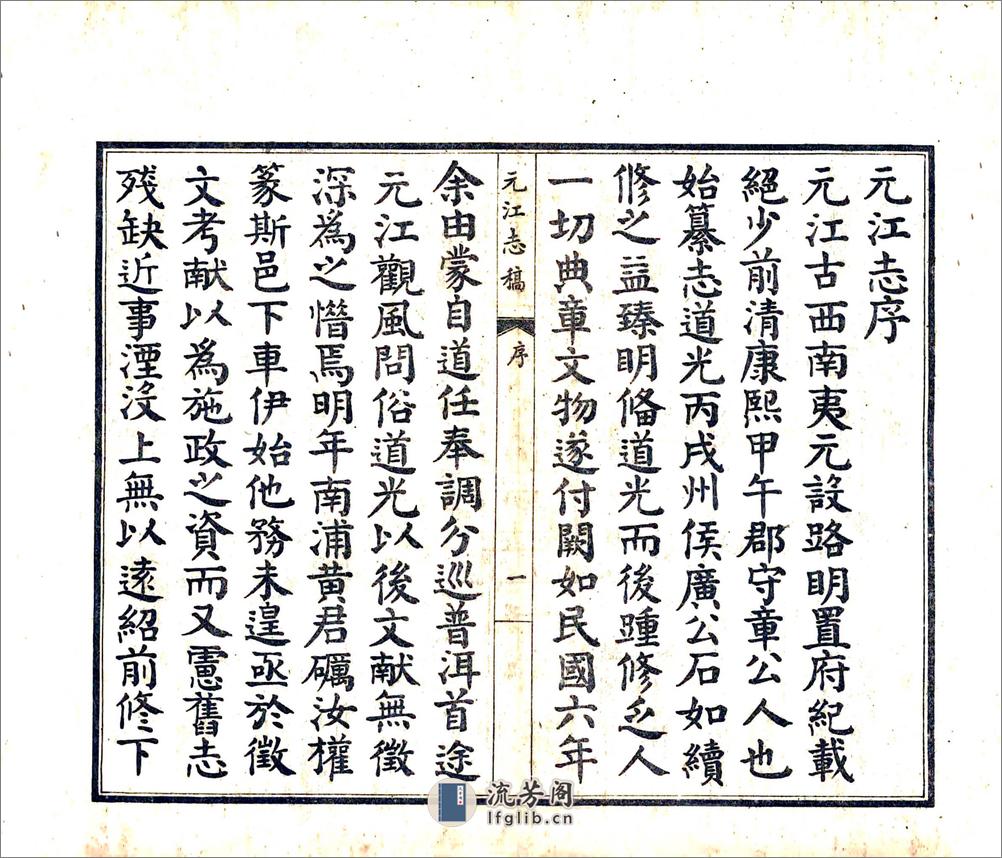 元江志序
元江古西南夷元設路明置府紀載
絕少前清康熙甲午郡守章公人也
始纂志道光丙戌州侯廣公石如續
修之益臻明備道光而後踵修乏人
一切典章文物遂付闕如民國六年
元江志稿
序
一
余由蒙自道任奉調分巡普洱首途
元江觀風問俗道光以後文献無徵
深為之憯焉明年南浦黄君礪汝權
篆斯邑下車伊始他務未遑亟於徵
文考献以為施政之資而又慮舊志
殘缺近事湮沒上無以遠紹前修下
流芳阁
lfglib.cn